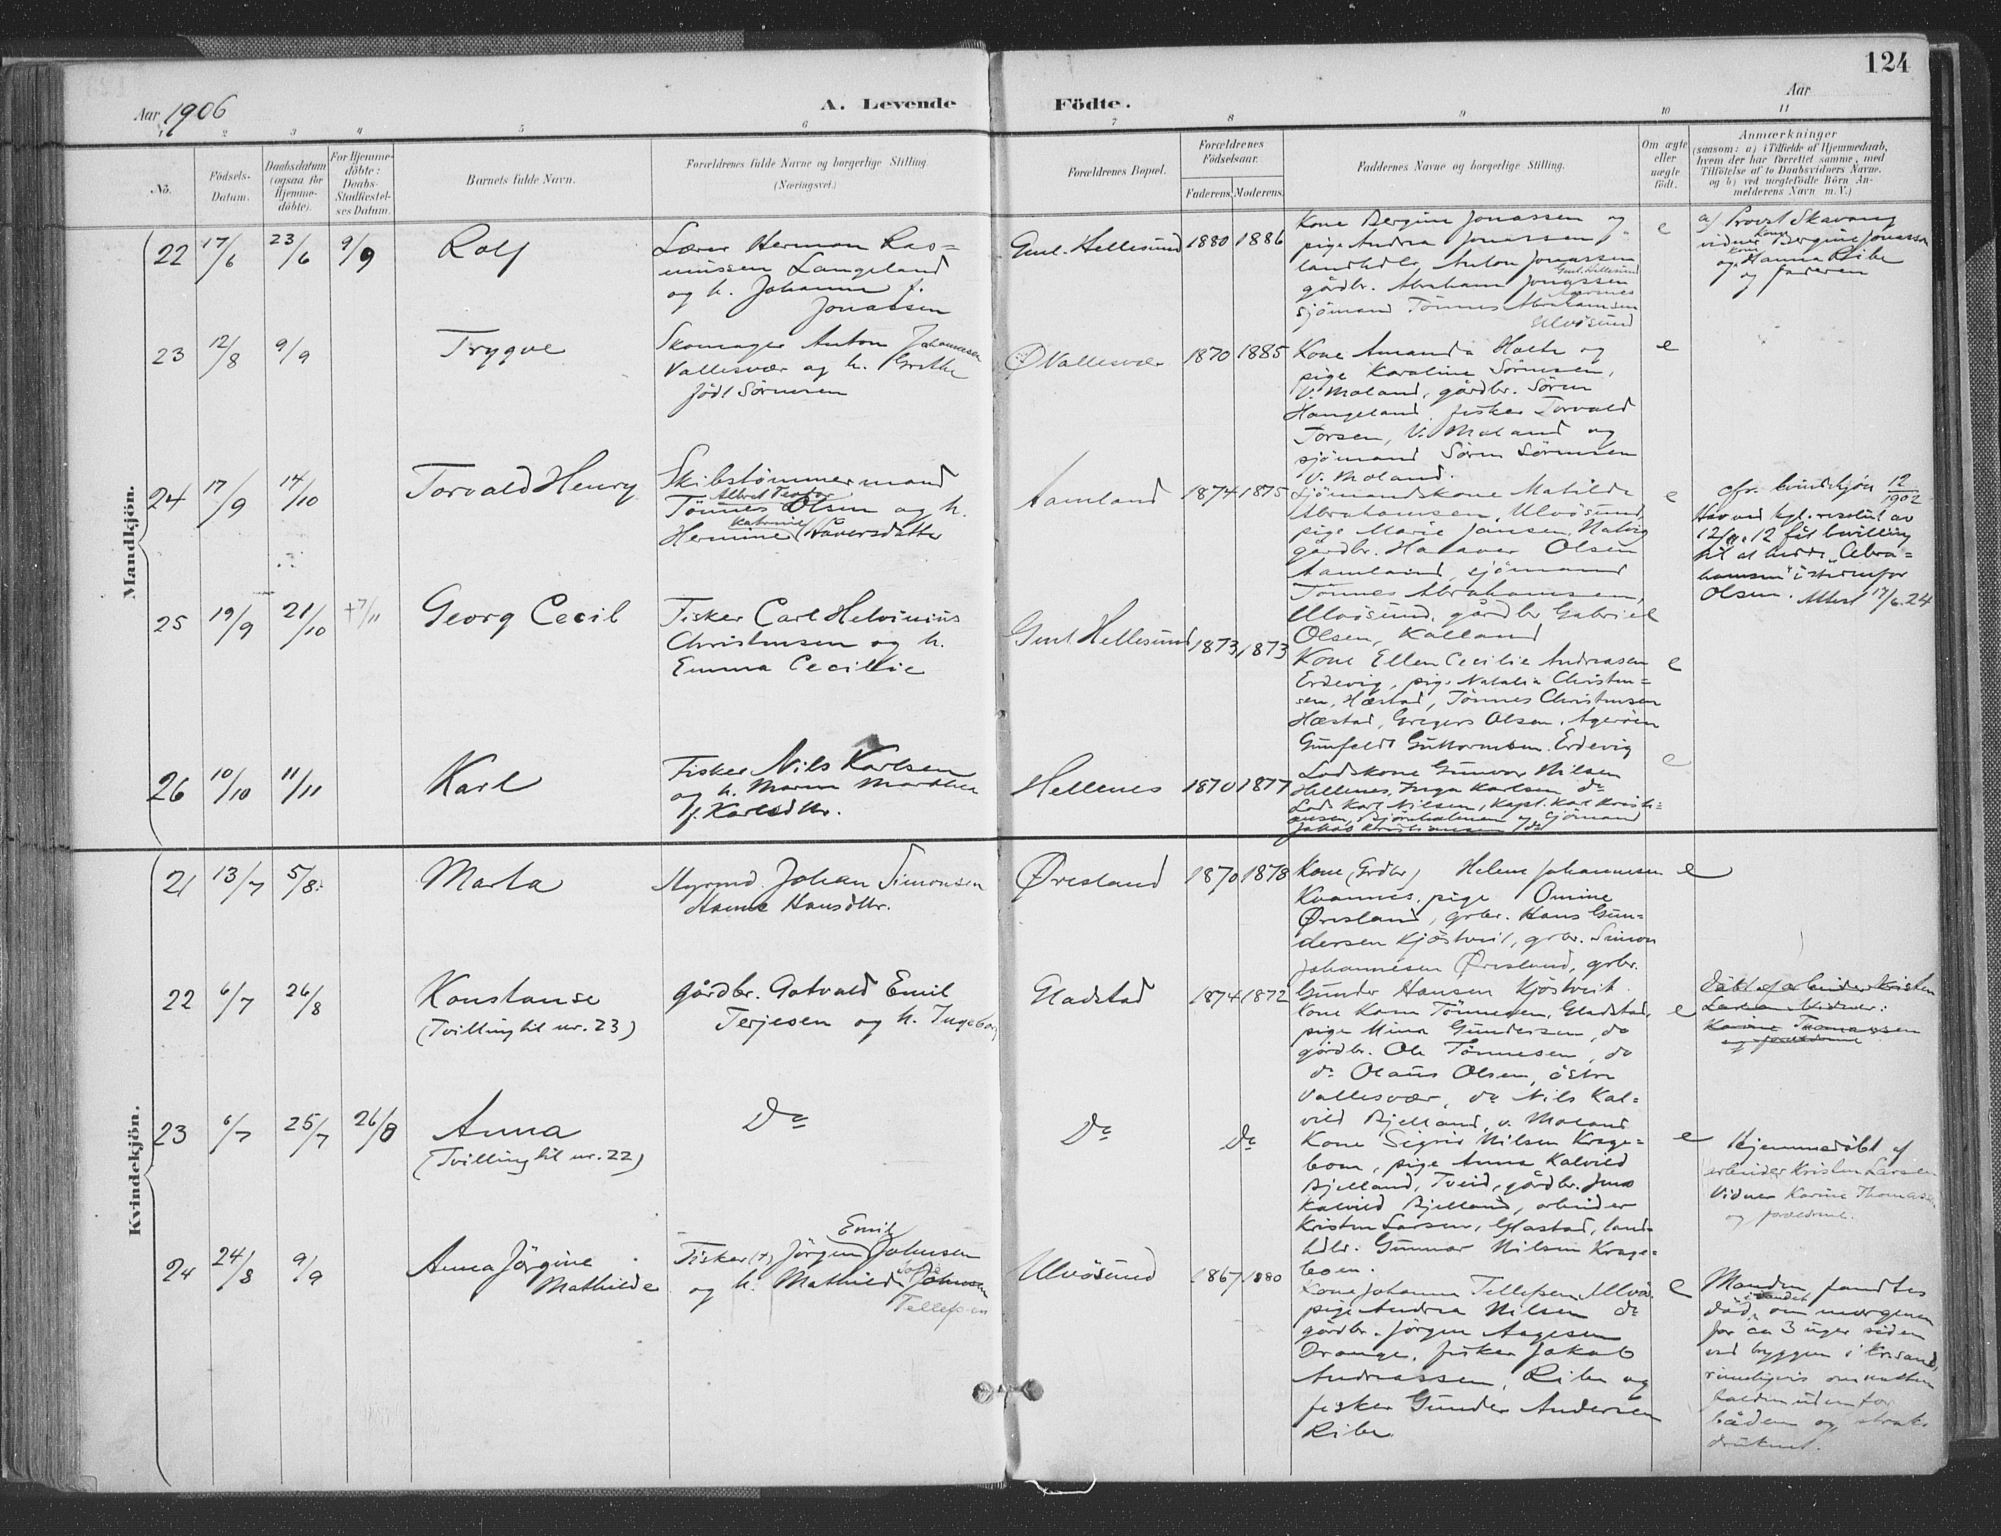 124
Aar 1906
A. Levende Födte.
Aar
1 2 3 4 5 6 7 8 9 10 11
No.
Födsels-Datum.
Daabsdatum (ogsaa for Hjemmedöbte).
For Hjemmedöbte: Daabs-Stadfæstelses Datum.
Barnets fulde Navn.
Forældrenes fulde Navne og borgerlige Stilling. (Næringsvei.)
Forældrenes Bopæl.
Forældrenes Födselsaar.
Faderens. Moderens.
Faddernes Navne og borgerlige Stilling.
Om ægte eller uægte födt.
Anmærkninger
(saasom: a) i Tilfælde af Hjemmedaab,
hvem der har forrettet samme, med
Tilföielse af to Daabsvidners Navne.
og b) ved uægtefödte Börn, An-
melderens Navn m. V.)
Mandkjön.
22 17/6 23/6 9/9 Rolf
Lærer Herman Ras=
mussen Langeland
og h. Johanne f.
Jonassen
Gml. Hellesund 1880 1886
Kone Bergine Jonassen og
pige Andrea Jonassen,
landhdlr. Anton Jonassen
Gml. Hellesund
gårdbr. Abraham Jonassen
sjömand Tönnes Abrahamsen
Ulvösund
e
a/ Provst Skavang
vidner Kone Bergine Jonassen
og kone Hanna Ribe
og faderen
23 12/8 9/9 Trygve
Skomager Anton Johannesen
Vallesvær og h. Grethe
födt Sörensen
Ø Vallesvær 1870 1885
Kone Amanda Holte og
pige Karoline Sörensen,
V. Moland, gårdbr. Sören
Haugeland, fisker Torvald
Torsen, V. Moland og
sjömand Sören Sörensen
V. Moland.
e
24 17/9 14/10 Torvald Henry
Skibstömmermand
Albret Teodor
Tönnes Olsen og h.
Katrine
Hermine Håversdatter
Aamland 1874 1875
Sjömandskone Matilde
Abrahamsen, Ulvösund,
pige Marie Jansen, Natvig
gårdbr. Haaver Olsen
Aamland, sjömand
Tönnes Abrahamsen,
Ulvösund, gårdbr Gabriel
Olsen, Kalland
e
cfr. kvindekjön 12/1902
Har ved kgl. resolut. av
12/11 12 fåt bevilling
til at hedde "Abra=
hamsen" istedenfor
Olsen. Attest 17/6.24
25 19/9 21/10 +7/11 Georg Cecil
Fisker Carl Helvinius
Christensen og h.
Emma Cecilie
Gml Hellesund 1873 1873
Kone Ellen Cecilie Andreasen
Erdevig, pige Natalia Christen=
sen, Hæstad, Tönnes Christensen
Hæstad, Gregers Olsen, Ageröen
Gunfeldt Guttormsen. Erdevig
e
26 10/10 11/11 Karl
Fisker Nils Karlsen
og h. Maren Marthea
f. Karlsdtr.
Hellenes 1870 1877
Lodskone Gunvor Nilsen
Hellenes, Inga Karlsen do
Lods Karl Nilsen, Kapt. Karl Kristi=
ansen, Björnholmen og Sjömand
Jakob Kristiansen do
e
Kvindekjön.
21 13/7 5/8. Marta
Styrmd. Johan Simonsen
Hansdtr.
Øresland 1870 1878
Kone (Grdbr) Helene Johannesen
Kvannes, pige Omine
Øresland, grbr. Hans Gun=
dersen Kjöstveit, grbr. Simon
Johannesen Øresland, grbr.
Gunder Hansen Kjöstveit.
e
22 6/7 26/8 Konstanse
(Tvilling til nr. 23)
gårdbr. Gotvald Emil
Terjesen og h. Ingeborg
Gladstad 1874 1872
Kone Karen Tönnesen, Gladstad,
pige Mina Gundersen, do
gårdbr. Ole Tönnesen, do
do Olaus Olsen, östre
Vallesvær, do Nils Kal=
vild Bjelland, v. Moland
e
Döbt af arbeider Kristen
Larsen. Vidner:
Karine Thomassen
og forældrene
23 6/7 25/7 26/8 Anna
(Tvilling til nr. 22)
Do Do Do
Kone Sigrid Nilsen Krage=
boen, pige Anna Kalvild
Bjelland, Tveid, gårdbr. Jens
Kalvild Bjelland, arbeider
Kristen Larsen, Glastad, land=
hdlr. Gunnar Nilsen Krage=
boen.
e
Hjemmedöbt af
arbeider Kristen Larsen
Vidner Karine Thomassen
og forældrene.
24 24/8 9/9 Anna Jörgine
Mathilde
Emil
Fisker (+) Jörgen Johnsen
og h. Mathilde Johnsen
Tellefsen
Ulvösund 1867 1880
Kone Johanna Tellefsen, Ulvö.
pige Andrea Nilsen do
gårdbr. Jörgen Aagesen
Drange, fisker Jakob
Andreassen, Ribe og
fisker Gunder Andersen
Ribe
e
Manden fandtes
död i vandet om morgenen
for ca 3 uger siden
ved bryggen i Krsand,
rimeligvis om natten
falden udenfor
båden og strax
druknet.